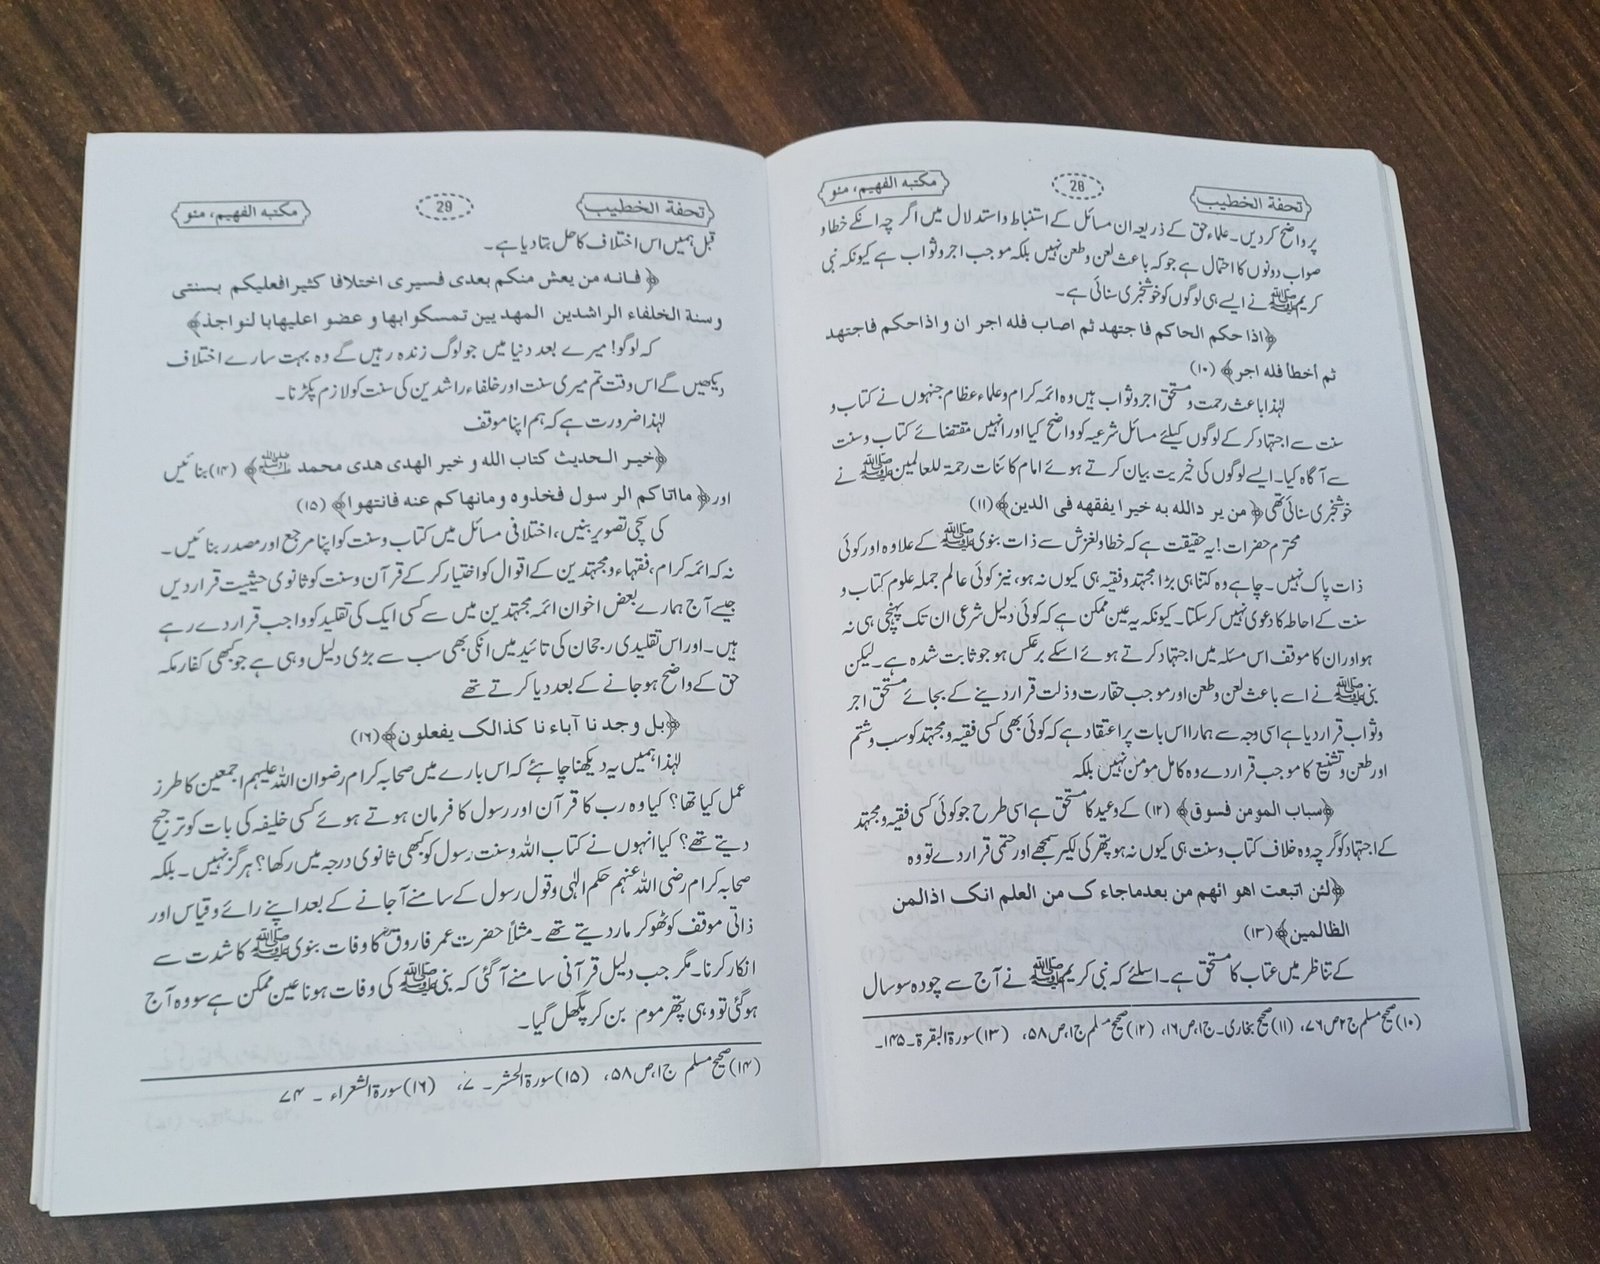 تحفة الخطيب
28
مكتبه الفهيم، مئو
پر واضح کردیں۔ علماء حق کے ذریعہ ان مسائل کے استنباط و استدلال میں اگر چہ انکے خطا و
صواب دونوں کا احتمال ہے جو کہ باعث لعن و طعن نہیں بلکہ موجب اجر و ثواب ہے کیونکہ نبی
کریم ﷺ نے ایسے ہی لوگوں کو خوشخبری سنائی ہے۔
﴿اذا حكم الحاكم فاجتهد ثم اصاب فله اجران و اذا حكم فاجتهد
ثم أخطأ فله اجر﴾ (۱۰)
لہٰذا باعث رحمت و مستحق اجر و ثواب ہیں وہ ائمہ کرام و علماء عظام جنہوں نے کتاب و
سنت سے اجتہاد کر کے لوگوں کیلئے مسائل شرعیہ کو واضح کیا اور انہیں مقتضائے کتاب و سنت
سے آگاہ کیا۔ ایسے لوگوں کی خیریت بیان کرتے ہوئے امام کائنات رحمۃ للعالمین ﷺ نے
خوشخبری سنائی تھی ﴿من يرد الله به خيرا يفقهه فى الدين﴾ (۱۱)
محترم حضرات! یہ حقیقت ہے کہ خطا و لغزش سے ذات نبوی ﷺ کے علاوہ اور کوئی
ذات پاک نہیں۔ چاہے وہ کتنا ہی بڑا مجتہد و فقیہ ہی کیوں نہ ہو، نیز کوئی عالم جملہ علوم کتاب و
سنت کے احاطہ کا دعوی نہیں کرسکتا۔ کیونکہ یہ عین ممکن ہے کہ کوئی دلیل شرعی ان تک پہنچی ہی نہ
ہو اور ان کا موقف اس مسئلہ میں اجتہاد کرتے ہوئے اسکے برعکس ہو جو ثابت شدہ ہے۔ لیکن
نبی ﷺ نے اسے باعث لعن و طعن اور موجب حقارت و ذلت قرار دینے کے بجائے مستحق اجر
و ثواب قرار دیا ہے اسی وجہ سے ہمارا اس بات پر اعتقاد ہے کہ کوئی بھی کسی فقیہ و مجتہد کو سب و شتم
اور طعن و تشنیع کا موجب قرار دے وہ کامل مومن نہیں بلکہ
﴿سباب المومن فسوق﴾ (۱۲) کے وعید کا مستحق ہے اسی طرح جو کوئی کسی فقیہ و مجتہد
کے اجتہاد کو گرچہ وہ خلاف کتاب و سنت ہی کیوں نہ ہو پتھر کی لکیر سمجھے اور حتمی قرار دے تو وہ
﴿لئن اتبعت اهوائهم من بعد ماجاءك من العلم انك اذا لمن
الظالمين﴾ (۱۳)
کے تناظر میں عتاب کا مستحق ہے۔ اسلئے کہ نبی کریم ﷺ نے آج سے چودہ سو سال
(۱۰) صحیح مسلم ج۲ ص۷۶، (۱۱) صحیح بخاری۔ ج۱، ص۱۶، (۱۲) صحیح مسلم ج۱، ص۵۸، (۱۳) سورۃ البقرۃ۔ ۱۴۵۔
تحفة الخطيب
29
مكتبه الفهيم، مئو
قبل ہمیں اس اختلاف کا حل بتا دیا ہے۔
﴿فانه من يعش منكم بعدى فسيرى اختلافا كثيرا فعليكم بسنتى
وسنة الخلفاء الراشدين المهديين تمسكوا بها و عضوا عليها بالنواجذ﴾
کہ لوگو! میرے بعد دنیا میں جو لوگ زندہ رہیں گے وہ بہت سارے اختلاف
دیکھیں گے اس وقت تم میری سنت اور خلفاء راشدین کی سنت کو لازم پکڑنا۔
لہٰذا ضرورت ہے کہ ہم اپنا موقف
﴿خير الحديث كتاب الله و خير الهدى هدى محمد ﷺ﴾ (۱۴) بنائیں
اور ﴿ما اتاكم الرسول فخذوه ومانهاكم عنه فانتهوا﴾ (۱۵)
کی سچی تصویر بنیں، اختلافی مسائل میں کتاب و سنت کو اپنا مرجع اور مصدر بنائیں۔
نہ کہ ائمہ کرام، فقہاء و مجتہدین کے اقوال کو اختیار کرکے قرآن و سنت کو ثانوی حیثیت قرار دیں
جیسے آج ہمارے بعض اخوان ائمہ مجتہدین میں سے کسی ایک کی تقلید کو واجب قرار دے رہے
ہیں۔ اور اس تقلیدی رجحان کی تائید میں انکی بھی سب سے بڑی دلیل وہی ہے جو کبھی کفار مکہ
حق کے واضح ہو جانے کے بعد دیا کرتے تھے
﴿بل وجدنا آباءنا كذالك يفعلون﴾ (۱۶)
لہٰذا ہمیں یہ دیکھنا چاہئے کہ اس بارے میں صحابہ کرام رضوان اللہ علیہم اجمعین کا طرز
عمل کیا تھا؟ کیا وہ رب کا قرآن اور رسول کا فرمان ہوتے ہوئے کسی خلیفہ کی بات کو ترجیح
دیتے تھے؟ کیا انہوں نے کتاب اللہ و سنت رسول کو کبھی ثانوی درجہ میں رکھا؟ ہرگز نہیں۔ بلکہ
صحابہ کرام رضی اللہ عنہم حکم الٰہی و قول رسول کے سامنے آ جانے کے بعد اپنے رائے و قیاس اور
ذاتی موقف کو ٹھوکر مار دیتے تھے۔ مثلاً حضرت عمر فاروقؓ کا وفات نبوی ﷺ کا شدت سے
انکار کرنا۔ مگر جب دلیل قرآنی سامنے آگئی کہ نبی ﷺ کی وفات ہونا عین ممکن ہے سو وہ آج
ہوگئی تو وہی پتھر موم بن کر پگھل گیا۔
(۱۴) صحیح مسلم ج۱، ص۵۸، (۱۵) سورۃ الحشر۔ ۷، (۱۶) سورۃ الشعراء ۔ ۷۴